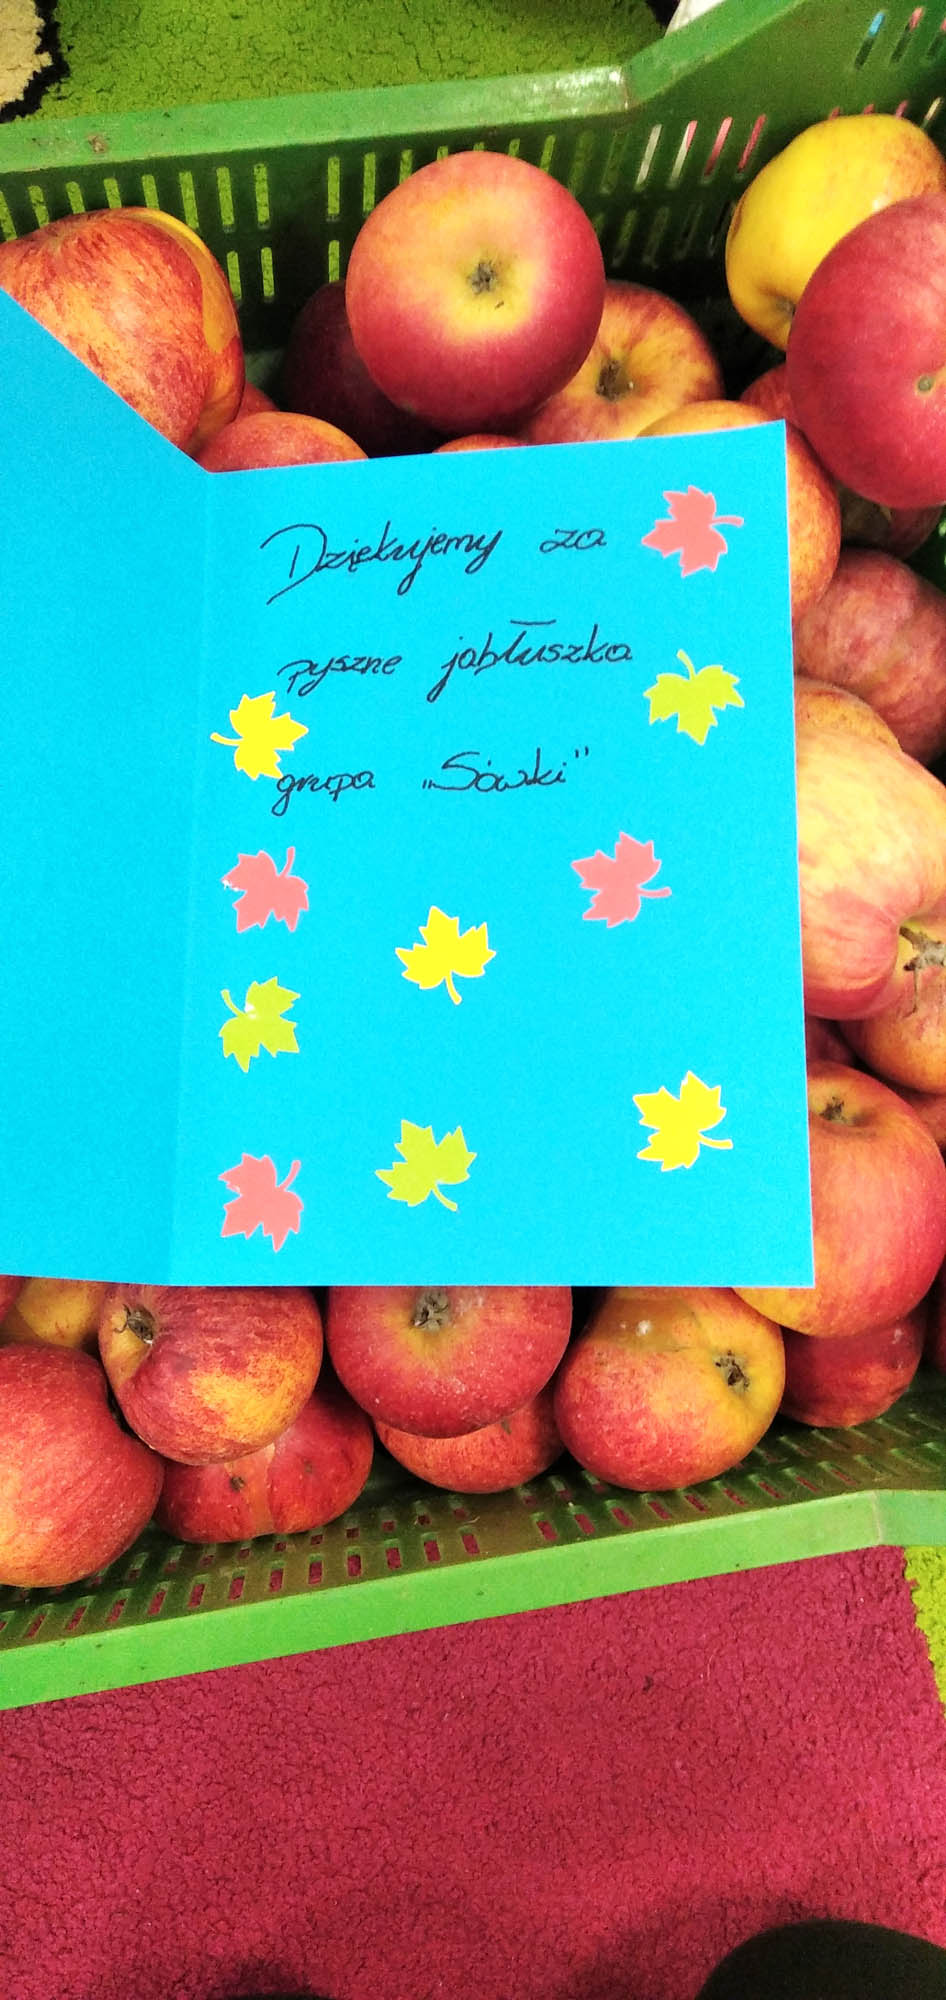 Dziękujemy za
pyszne jabłuszka
grupa „Sówki”